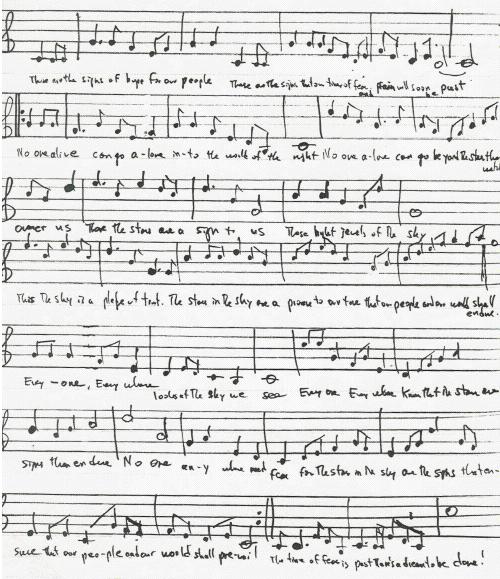 These are the signs of hope for our people These are the signs that our time of fear and pain will soon be past
No one alive can go a-lone in-to the world of the night No one a-lone can go beyond the stars that watch
over us There the stars are a sign to us These bright jewels of the sky
This the sky is a pledge of trust. The stars in the sky are a promise to our trust that our people and our world shall endure.
Every-one, Every where looks at the sky we see Every one Every where knows that the stars are
signs that en dure No one an-y where need fear for the stars in the sky are the signs that en-
sure that our peo-ple and our world shall pre-vail The time of fear is past there's a dream to be done!